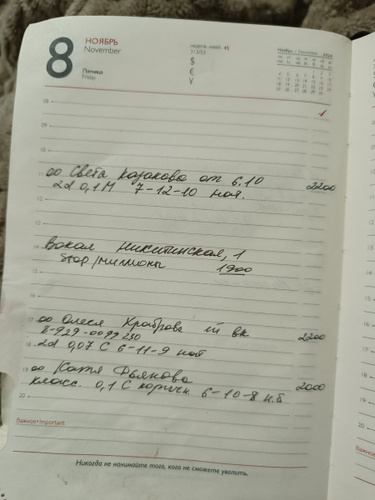 8
НОЯБРЬ
November
Пятница
Friday
неделя /week 45
$
€
¥
Ноябрь / November 2024
08
1
09
10
00 Света Казакова от 6.10 2200
2d 0,1 М 7-12-10 ноя.
12
13
Вокал Никитинская, 1
Stop/миллионы 1900
15
16
17
00 Олеся Храброва ВК 2200
8-929-0099230
18 2d 0,07 С 6-11-9 ноя
19
00 Катя Дьянова 2000
класс. 0,1 С коричн. 6-10-8 н.б
20
Важное/Important
Никогда не нанимайте того, кого не сможете уволить.